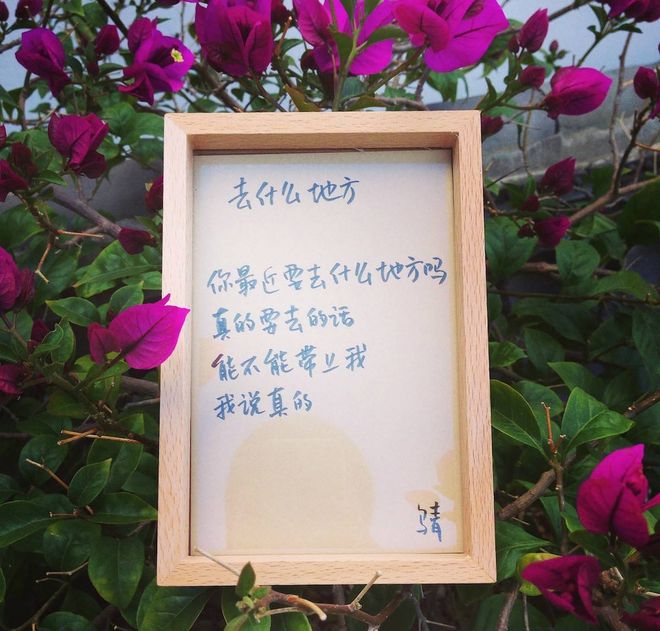 去什么地方
你最近要去什么地方吗
真的要去的话
能不能带上我
我说真的
乌青